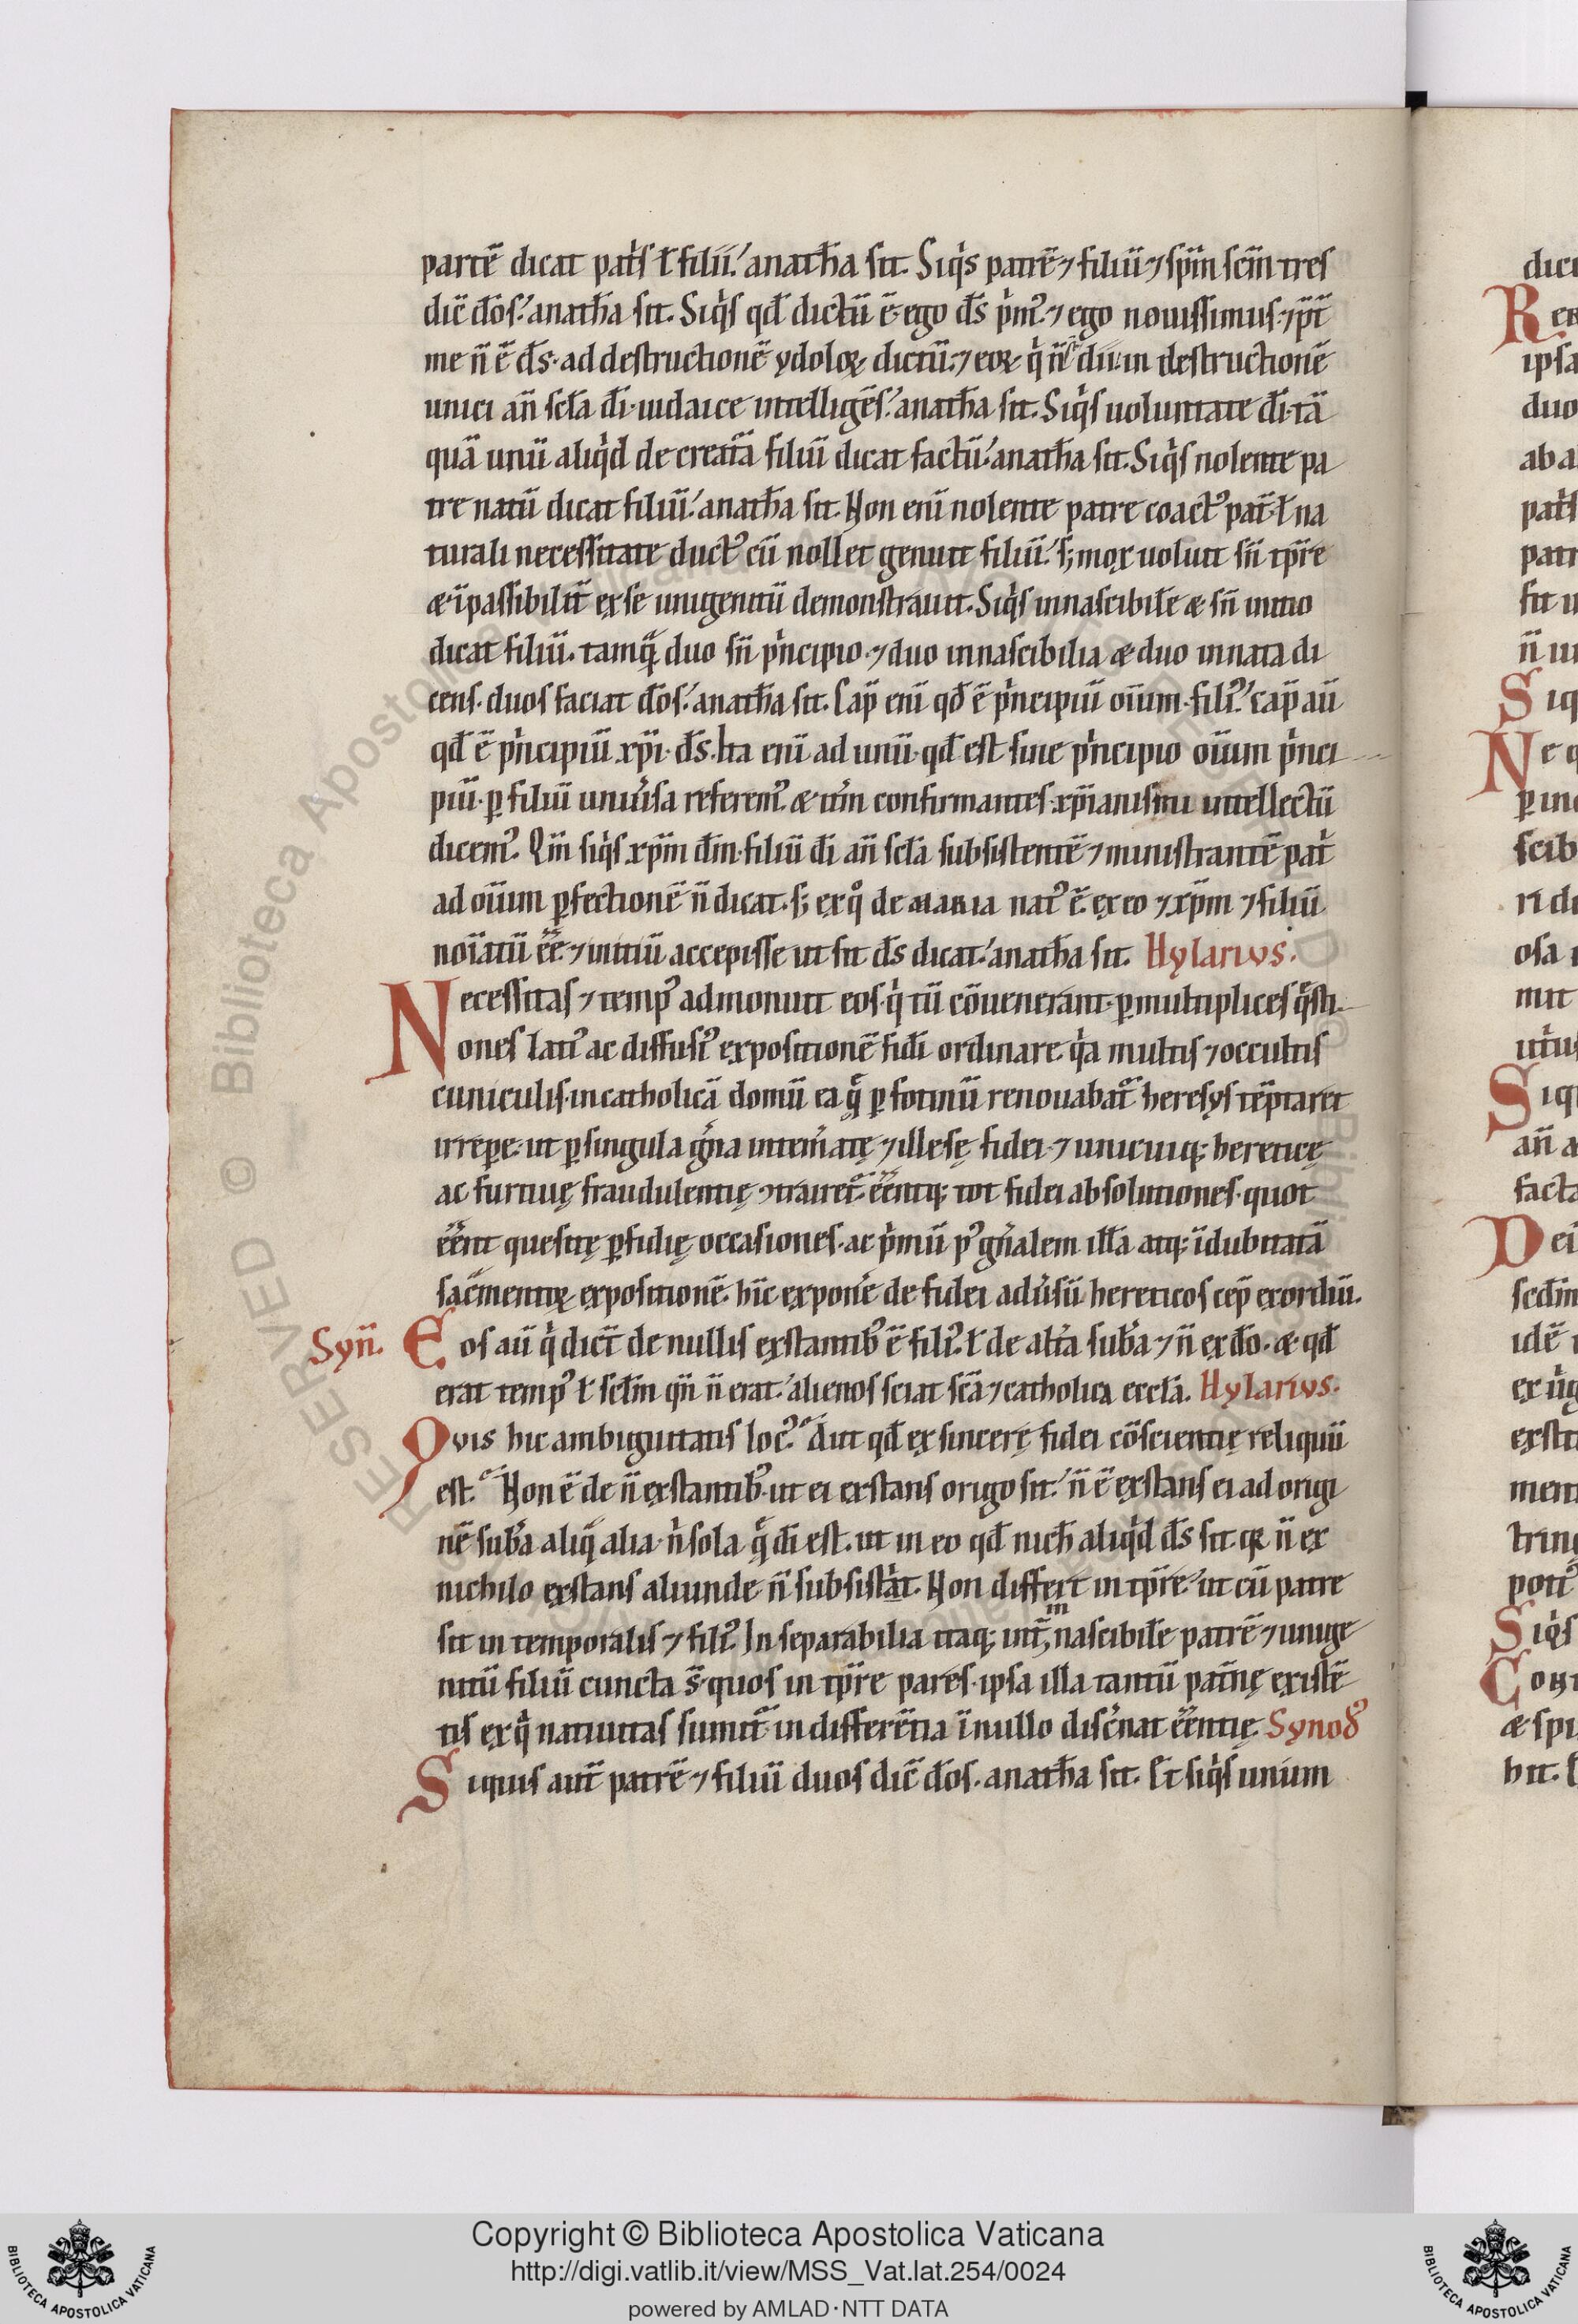 partē dicat pat̄s ł filii. anatħa sit. Siq̍s patrē ⁊ filiū ⁊ sp̄m sc̄m tres
dic̄ d̄os. anatħa sit. Siq̍s qd̄ dictū ē. ego d̄s p̍m᾿. ⁊ ego nouissimus. ⁊ p̄t
me n̄ ē d̄s. ad destructionē ydoloꝝ dictū. ⁊ eoꝝ q̍ n̄ s̄ dii. in destructionē
unici an̄ sc̄la d̄i. iudaice intelligēs. anatħa sit. Siq̍s uoluntate d̄i. tā
quā unū aliq̍d de creat̄a filiū dicat factū. anatħa sit. Siq̍s nolente pa
tre natū dicat filiū. anatħa sit. Non enī nolente patre coact᾿ pat̄. ł na
turali necessitate duct᾿ cū nollet genuit filiū. s; mox uoluit sn̄ tp̄re
æ īpassibilit̄ ex se unigenitū demonstrauit. Siq̍s innascibile æ sn̄ initio
dicat filiū. tamq̄ duo sn̄ p̍ncipio. ⁊ duo innascibilia æ duo innata di
cens. duos faciat d̄os. anatħa sit. Cap̄ enī qd̄ ē p̍ncipiū oīum. fili᾿. cap̄ aū
qd̄ ē p̍ncipiū xp̄i. d̄s. Ita enī ad unū. qd̄ est sine p̍ncipio oīum p̍nci
piū. ꝑ filiū uniu̍sa referem᾿. æ it̄m confirmantes xp̄ianismi intellectū
dicem᾿. Qm̄ siq̍s xp̄m d̄m. filiū d̄i an̄ sc̄la subsistentē ⁊ ministrantē pat̍
ad oīum ꝑfectionē n̄ dicat. s; ex qͦ de maria nat᾿ ē. ex eo ⁊ xp̄m ⁊ filiū
noīatū ēē. ⁊ initiū accepisse ut sit d̄s dicat. anatħa sit. Hylarivs.
Necessitas ⁊ temp᾿ admonuit eos. q̍ tū cōuenerant. ꝑ multiplices q̄sti
ones lati᾿ ac diffusi᾿ expositionē fid̄i ordinare. q̍a multis ⁊ occultis
cuniculis. in catholicā domū ea q̄ ꝑ fotinū renouabat̄ heresys tēptaret
irreꝑe. ut ꝑ singula gn̄a intem̍atę ⁊ illesę fidei. ⁊ unicuiq; hereticę
ac furtiuę fraudulentię ꝯtrairet̄. ēēntq; tot fidei absolutiones. quot
ēēnt quesitę ꝑfidię occasiones. ac p̍mū p᾿ gn̄alem illā atq; īdubitatā
sac̄mentoꝝ expositionē. hīc expone̍ de fidei adu̍sū hereticos cep̄ exordiū.
Syn̄. Eos aū q̍ dic̄t de nullis exstantib᾿ ē fili᾿. ł de alt̍a sub̄a ⁊ n̄ ex d̄o. æ qd̄
erat temp᾿ ł sc̄lm qn̄ n̄ erat. alienos sciat sc̄a ⁊ catholica eccl̄a. Hylarivs.
Qvis hic ambiguitatis loc᾿. Aut qd̄ ex sincerę fidei cōscientię reliquū
est. Non ē de n̄ exstantib᾿. ut ei exstans origo sit. n̄ ē exstans ei ad origi
nē sub̄a aliq̄ alia. n̍ sola q̄ d̄i est. ut in eo qd̄ nicħ aliq̍d d̄s sit. qꝛ n̄ ex
nichilo exstans aliunde n̄ subsistat. Non differt in tp̄re. ut cū patre
sit in temporalis ⁊ fili᾿. Inseparabilia itaq; int̄ nascibile patrē ⁊ unige
nitū filiū cuncta s̄. quos in tp̄re pares. ipsa illa tantū pat̄nę existē
tis ex q̄ natiuitas sumit̄. indifferētia ī nullo disc̍nat ēēntię. Synod᾿
Siquis aut̄ patrē ⁊ filiū duos dic̄ d̄os. anatħa sit. Et siq̍s unum
Copyright © Biblioteca Apostolica Vaticana
http://digi.vatlib.it/view/MSS_Vat.lat.254/0024
powered by AMLAD·NTT DATA